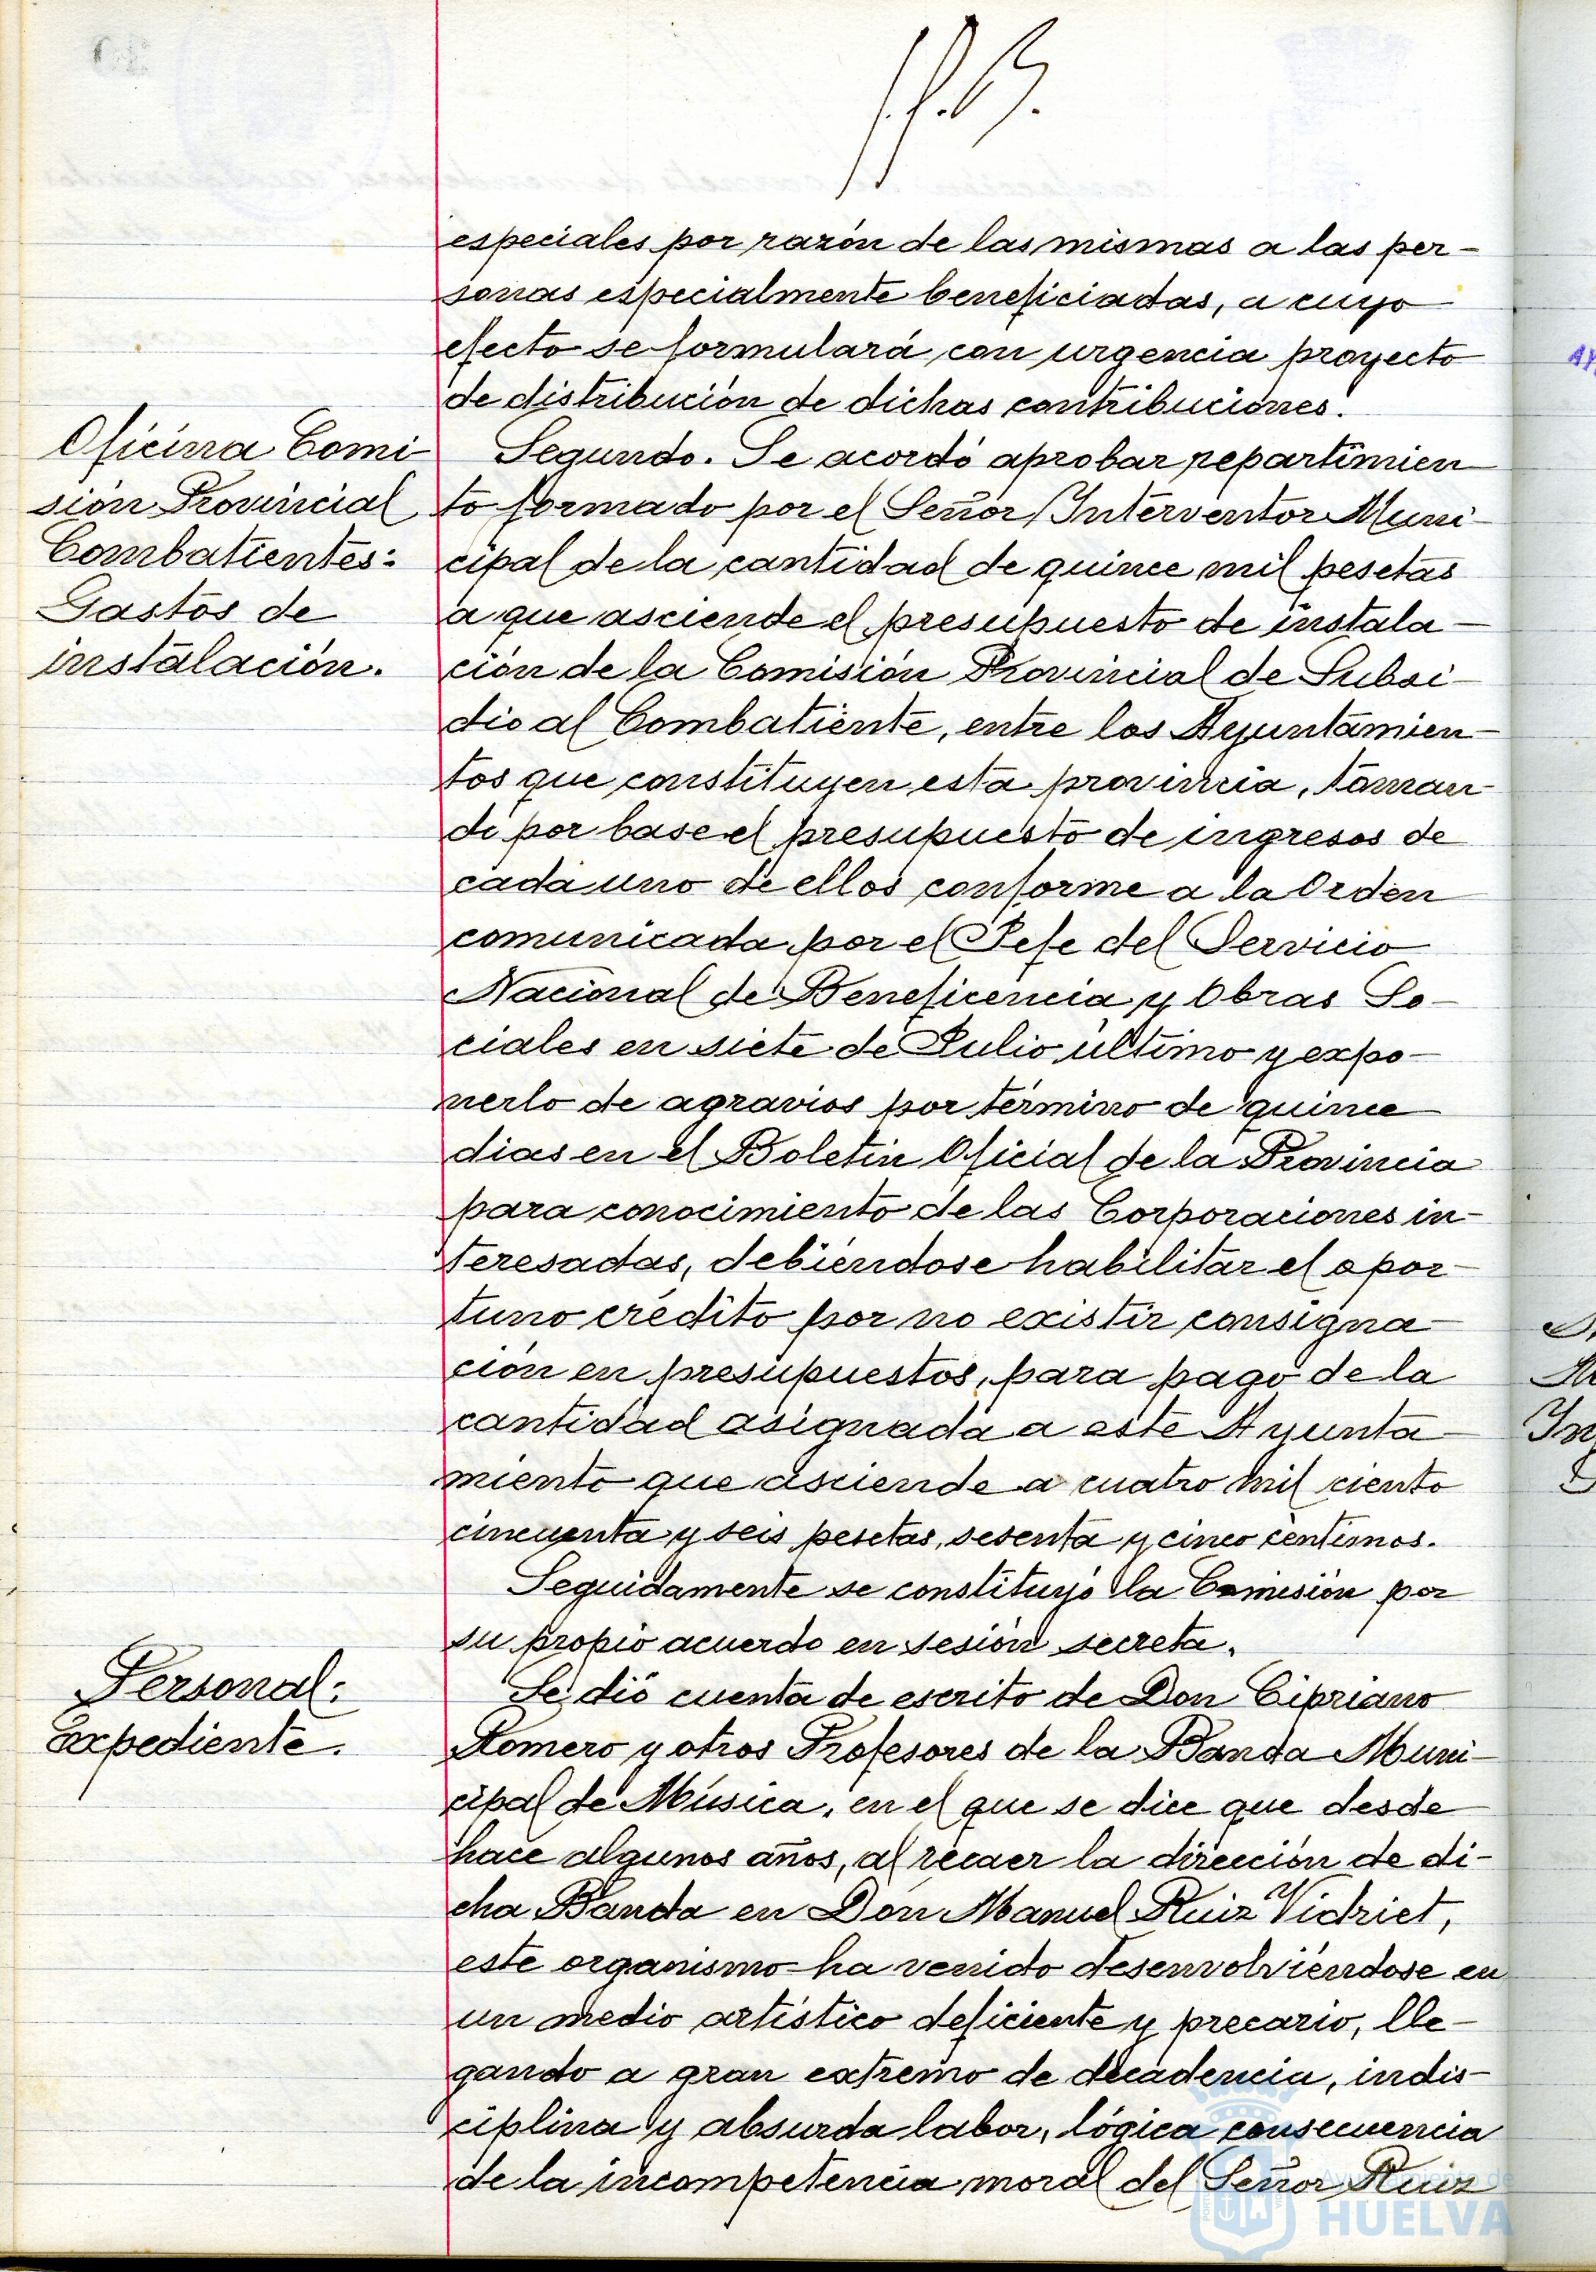 especiales por razón de las mismas a las per-
sonas especialmente beneficiadas, a cuyo
efecto se formulará con urgencia proyecto
de distribución de dichas contribuciones.
Oficina Comi
sión Provincial
Combatientes:
Gastos de
instalación.
Segundo. Se acordó aprobar repartimien
to formado por el Señor Interventor Muni-
cipal de la cantidad de quince mil pesetas
a que asciende el presupuesto de instala-
ción de la Comisión Provincial de Subsi-
dio al Combatiente, entre los Ayuntamien-
tos que constituyen esta provincia, toman-
do por base el presupuesto de ingresos de
cada uno de ellos conforme a la Orden
comunicada por el Jefe del Servicio
Nacional de Beneficencia y Obras So-
ciales en siete de Julio último y expo-
nerlo de agravios por término de quince
dias en el Boletin Oficial de la Provincia
para conocimiento de las Corporaciones in-
teresadas, debiéndose habilitar el opor-
tuno crédito por no existir consigna-
ción en presupuestos, para pago de la
cantidad asignada a este Ayunta-
miento que asciende a cuatro mil ciento
cincuenta y seis pesetas, sesenta y cinco centimos.
Seguidamente se constituyó la Comisión por
su propio acuerdo en sesión secreta.
Personal:
Expediente.
Se dió cuenta de escrito de Don Cipriano
Romero y otros Profesores de la Banda Muni-
cipal de Música, en el que se dice que desde
hace algunos años, al recaer la dirección de di-
cha Banda en Don Manuel Ruiz Vidriet,
este organismo ha venido desenvolviéndose en
un medio artístico deficiente y precario, lle-
gando a gran extremo de decadencia, indis-
ciplina y absurda labor, lógica consecuencia
de la incompetencia moral del Señor Ruiz
Ayuntamiento de
HUELVA